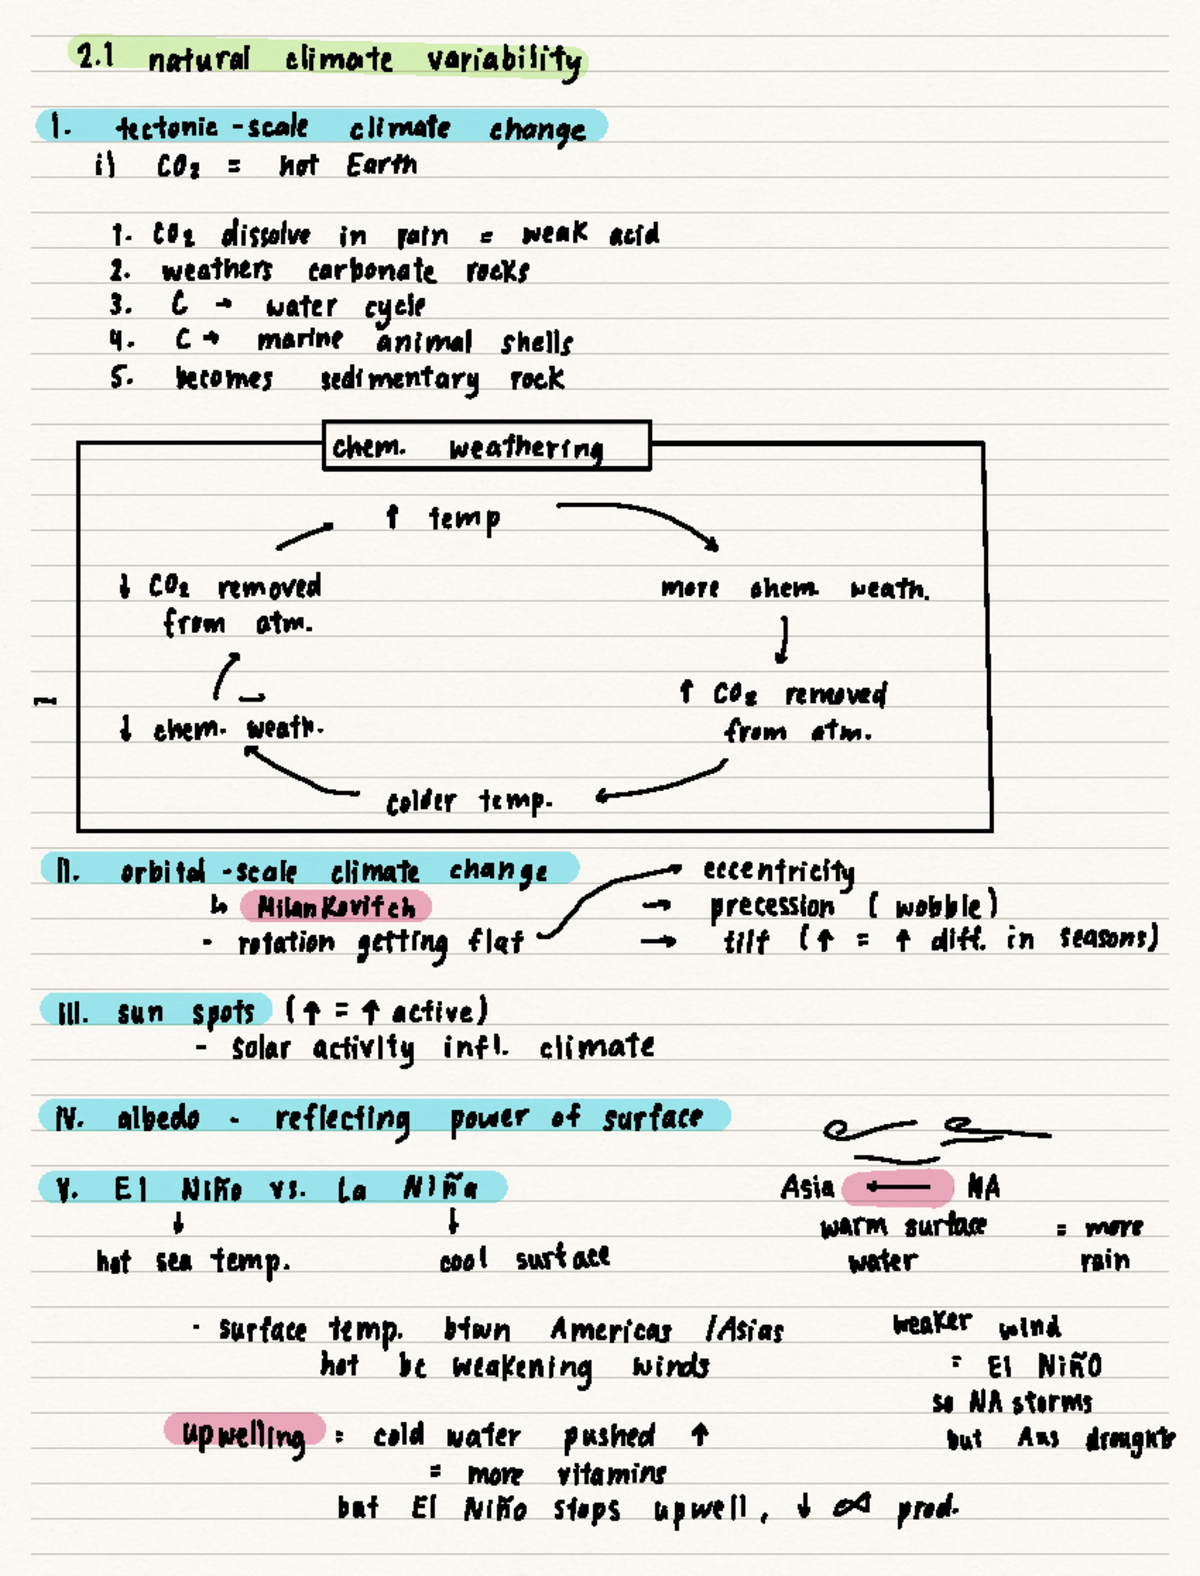 2.1 natural climate variability
I. tectonic-scale climate change
i) CO₂ = hot Earth
1. CO₂ dissolve in rain = weak acid
2. weathers carbonate rocks
3. C → water cycle
4. C → marine animal shells
5. becomes sedimentary rock
chem. weathering
↑ temp
more chem. weath.
↑ CO₂ removed
from atm.
colder temp.
↓ chem. weath.
↓ CO₂ removed
from atm.
II. orbital-scale climate change
↳ Milankovitch
- rotation getting flat
→ eccentricity
→ precession (wobble)
→ tilt (↑ = ↑ diff. in seasons)
III. sun spots (↑ = ↑ active)
- solar activity infl. climate
IV. albedo - reflecting power of surface
V. El Niño vs. La Niña
↓ ↓
hot sea temp. cool surface
Asia ← NA
warm surface = more
water rain
- surface temp. btwn Americas /Asias
hot bc weakening winds
weaker wind
= El Niño
so NA storms
but Aus droughts
upwelling = cold water pushed ↑
= more vitamins
but El Niño stops upwell, ↓ prod.